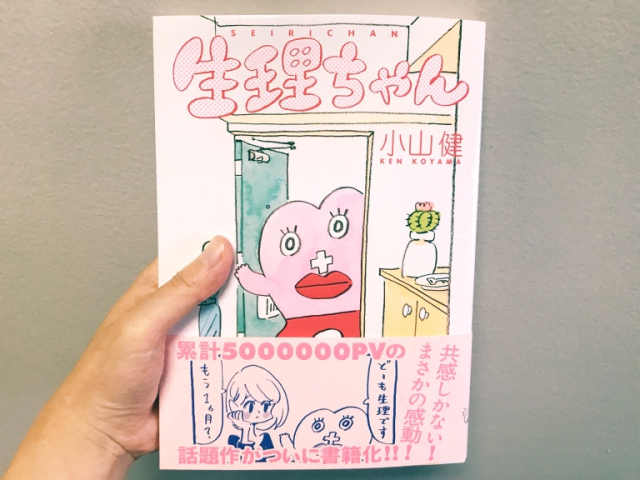 SEIRICHAN
生理ちゃん
小山健
KEN KOYAMA
累計5000000PVの
共感しかない!
まさかの感動!
どーも生理です
もう1ヵ月?
話題作がついに書籍化!!